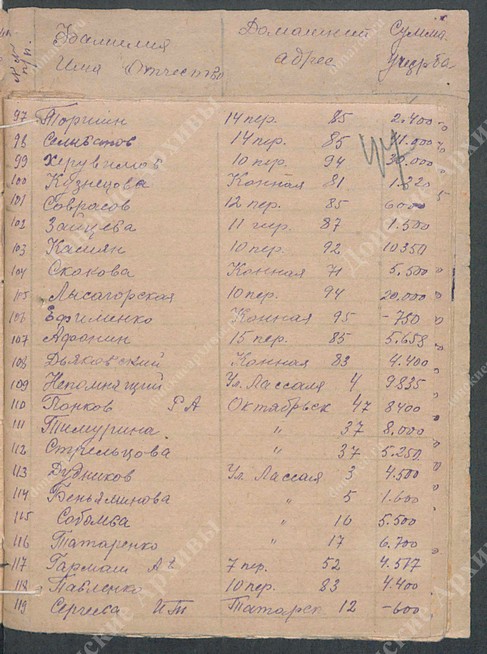 №№ п/п. Фамилия Имя Отчество Домашний адрес Сумма ущерба
97 Поршин 14 пер. 85 2.400
98 14 пер. 85
99 Херувимов 10 пер. 94
100 Кузнецова Конная 81
101 Саврасов 12 пер. 85 600
102 Зайцева 11 пер. 87 1.500
103 Касиян 10 пер. 92 10350
104 Скокова Конная 71 5.500
105 Лысагорская 10 пер. 94 20.000
106 Ефименко Конная 95 - 750
107 Афонин 15 пер. 85 5.658
108 Дьяковский Конная 83 4.400
109 Непомнящий Ул. Лассаля 4 9835
110 Попков Г А Октябрьск 47 8400
111 Тимурина " 37 8.000
112 Стрельцова " 37 5.250
113 Дудников Ул. Лассаля 3 4.500
114 Беньяминова " 5 1.600
115 " 16 5.500
116 Татаренко " 17 6.700
117 Гармаш А 7 пер. 52 4.577
118 Павленко 10 пер. 83 4.400
119 Татарск 12 - 600